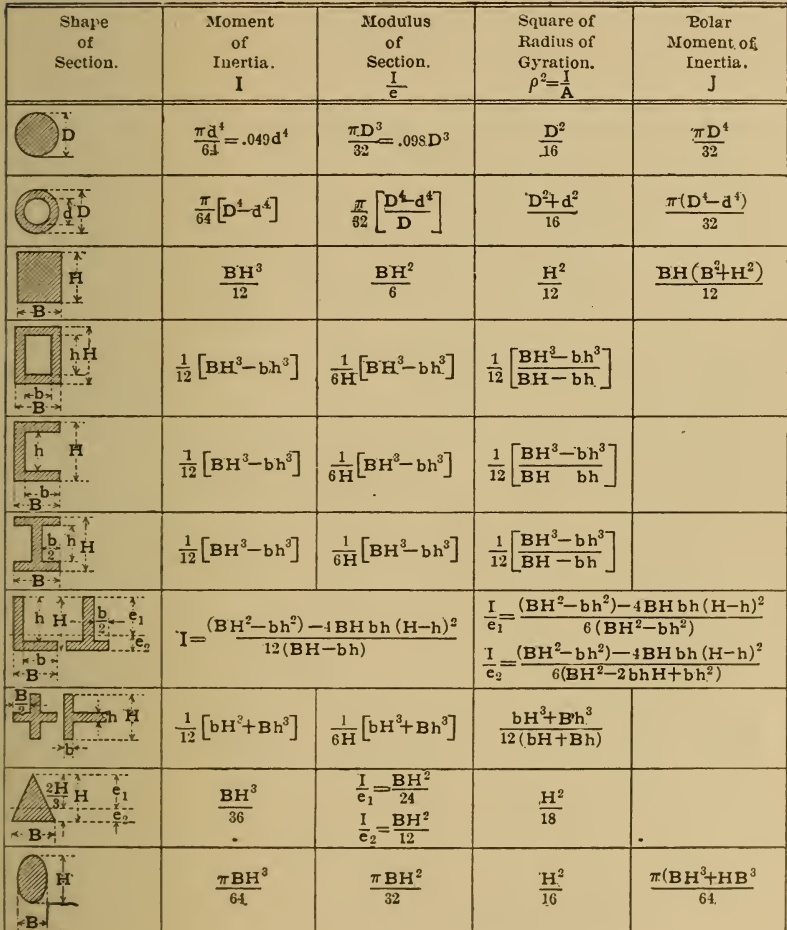 Shape of Section. | Moment of Inertia. I | Modulus of Section. I/e | Square of Radius of Gyration. ρ²=I/A | Polar Moment of Inertia. J
D | πd⁴/64 = .049d⁴ | πD³/32 = .098D³ | D²/16 | πD⁴/32
d D | π/64 [D⁴-d⁴] | π/32 [D⁴-d⁴/D] | D²+d²/16 | π(D⁴-d⁴)/32
H B | BH³/12 | BH²/6 | H²/12 | BH(B²+H²)/12
h H b B | 1/12 [BH³-bh³] | 1/6H [BH³-bh³] | 1/12 [BH³-bh³/BH-bh]
h H b B | 1/12 [BH³-bh³] | 1/6H [BH³-bh³] | 1/12 [BH³-bh³/BH bh]
b/2 h H B | 1/12 [BH³-bh³] | 1/6H [BH³-bh³] | 1/12 [BH³-bh³/BH-bh]
h H b/2 e₁ e₂ b B | I=(BH²-bh²)-4BHbh(H-h)²/12(BH-bh) | I/e₁=(BH²-bh²)-4BHbh(H-h)²/6(BH²-bh²)
I/e₂=(BH²-bh²)-4BHbh(H-h)²/6(BH²-2bhH+bh²)
B/2 h H b | 1/12 [bH²+Bh³] | 1/6H [bH³+Bh³] | bH³+Bh³/12(bH+Bh)
2H/3 H e₁ e₂ B | BH³/36 | I/e₁=BH²/24 I/e₂=BH²/12 | H²/18
H B | πBH³/64 | πBH²/32 | H²/16 | π(BH³+HB³/64